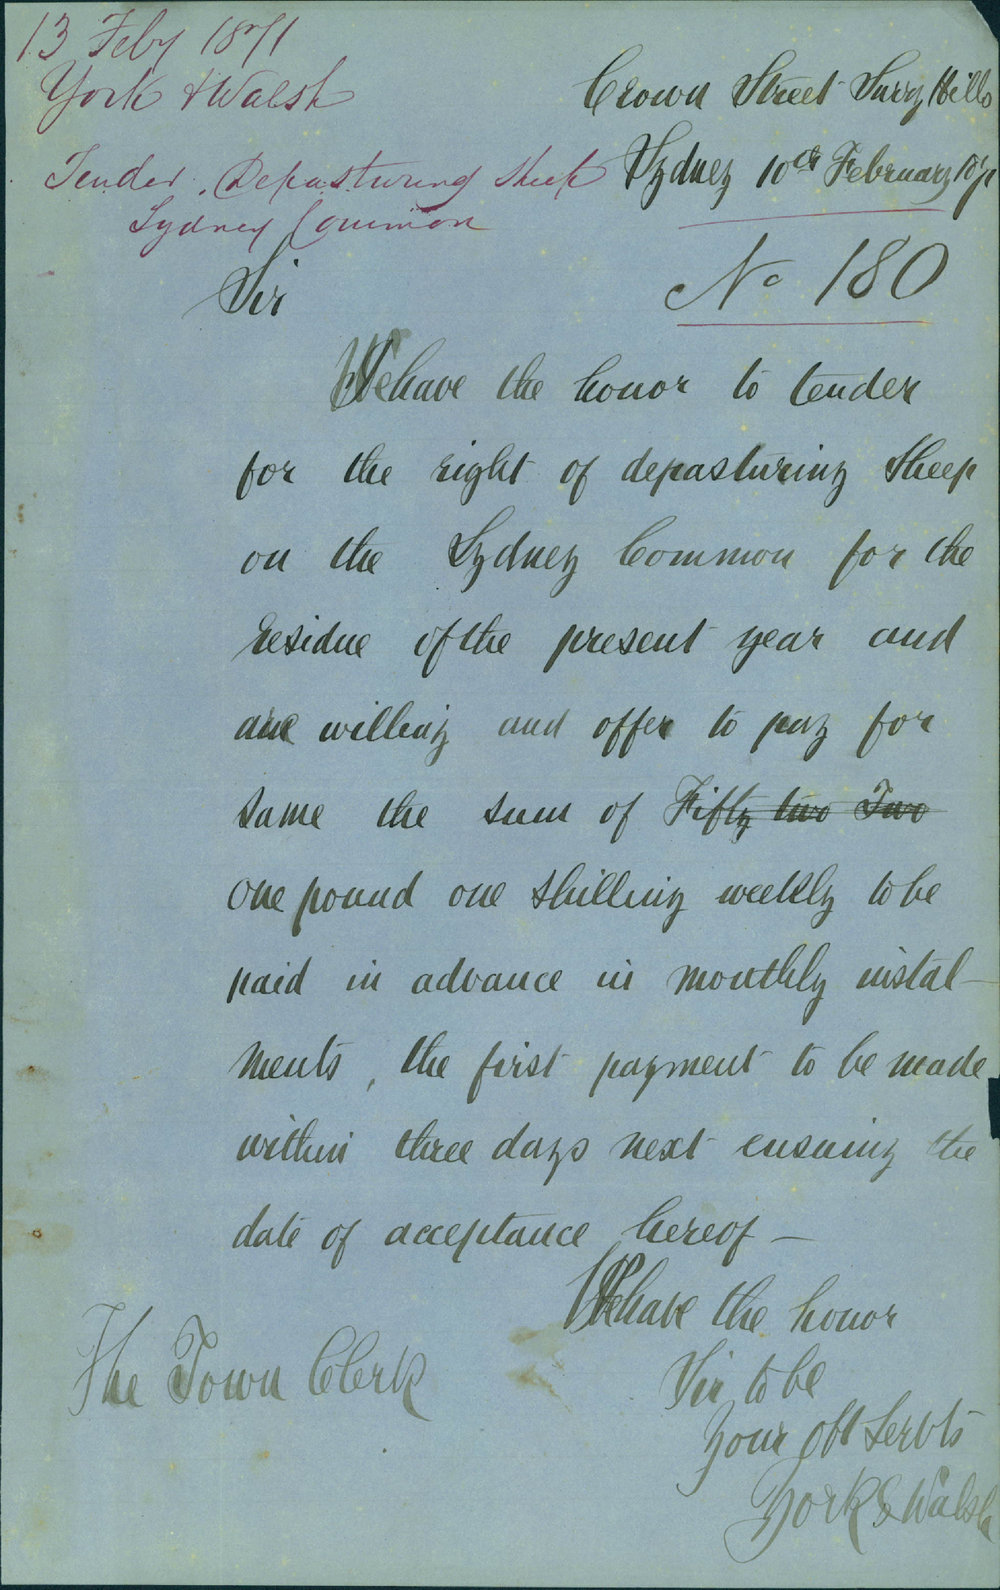 13 Feby 1871
York & Walsh
Tender. Depasturing Sheep
Sydney Common
Crown Street Surry Hills
Sydney 10th February 1871
No 180
Sir
We have the honor to tender
for the right of depasturing Sheep
on the Sydney Common for the
residue of the present year and
are willing and offer to pay for
same the sum of Fifty two Two
one pound one shilling weekly to be
paid in advance in monthly instal-
ments, the first payment to be made
within three days next ensuing the
date of acceptance hereof —
We have the honor
Sir to be
Your Obt Servts
York & Walsh
The Town Clerk